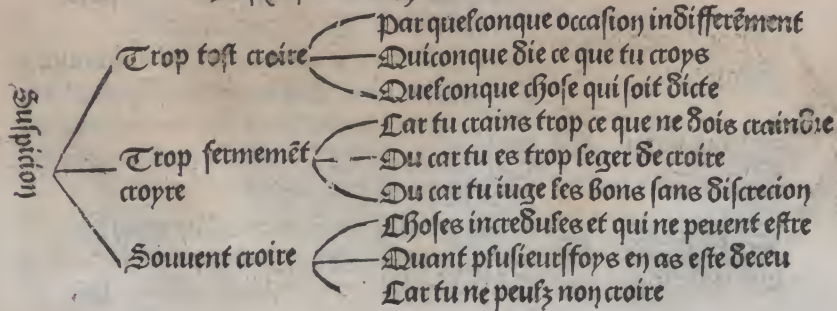 Suspicion
Trop tost croire
Par quelconque occasion indifferẽment
Quiconque die ce que tu croys
Quelconque chose qui soit dicte
Trop fermemẽt
croyre
Car tu crains trop ce que ne dois craindre
Ou car tu es trop leger de croire
Ou car tu iuge les bons sans discrecion
Souuent croire
Choses incredules et qui ne peuent estre
Quant plusieurs foys en as este deceu
Car tu ne peulz non croire